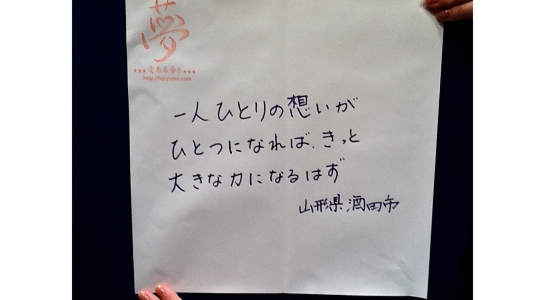 夢
一人ひとりの想いが
ひとつになれば、きっと
大きな力になるはず
山形県酒田市